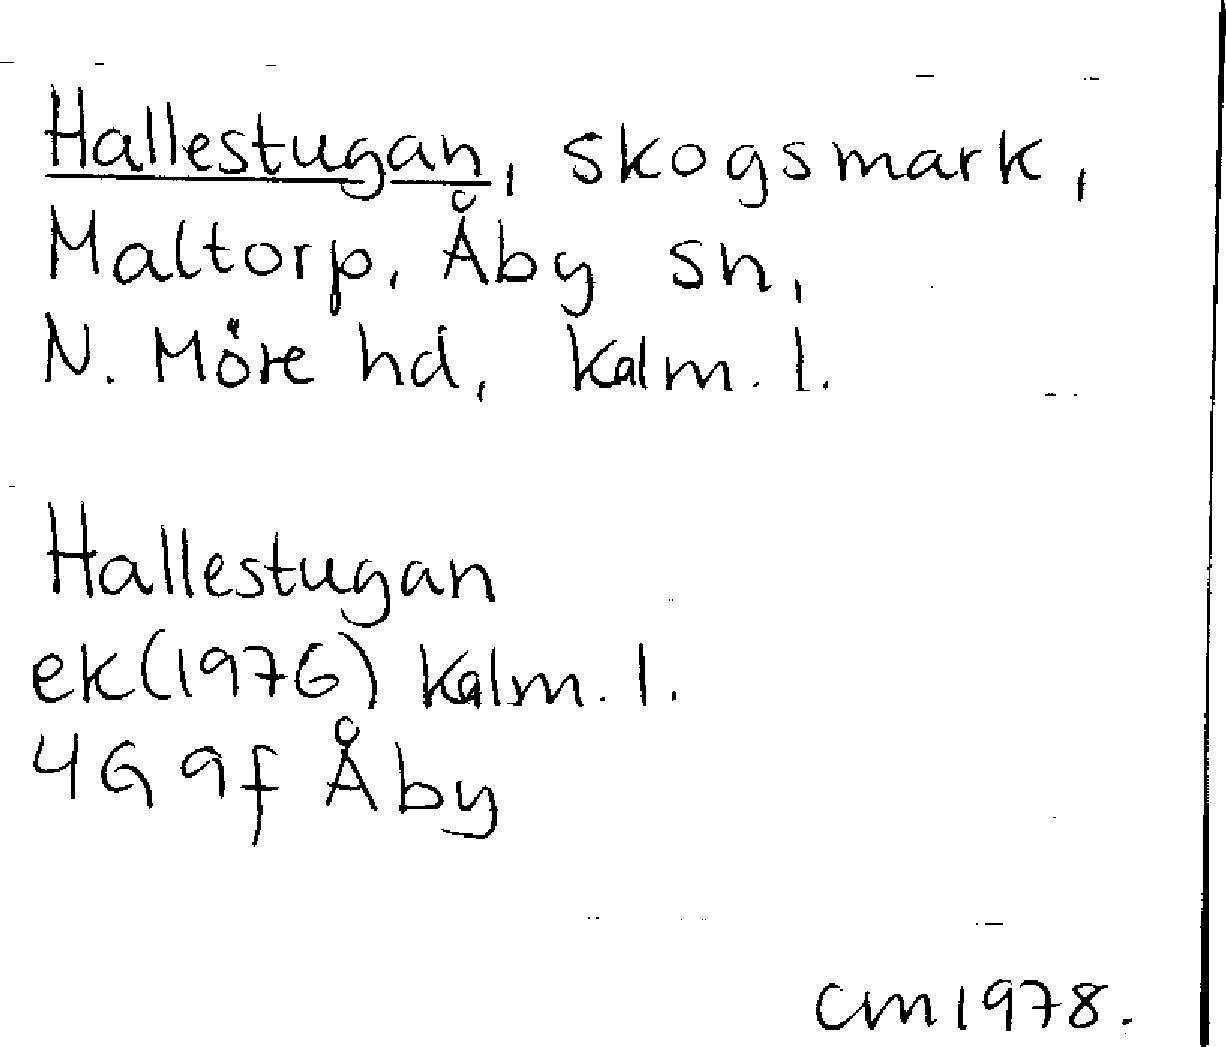 Hallestugan, skogsmark,
Maltorp, Åby sn,
N. Möre hd, Kalm. l.
Hallestugan
ek(1976) Kalm. l.
4G 9f Åby
CM 1978.